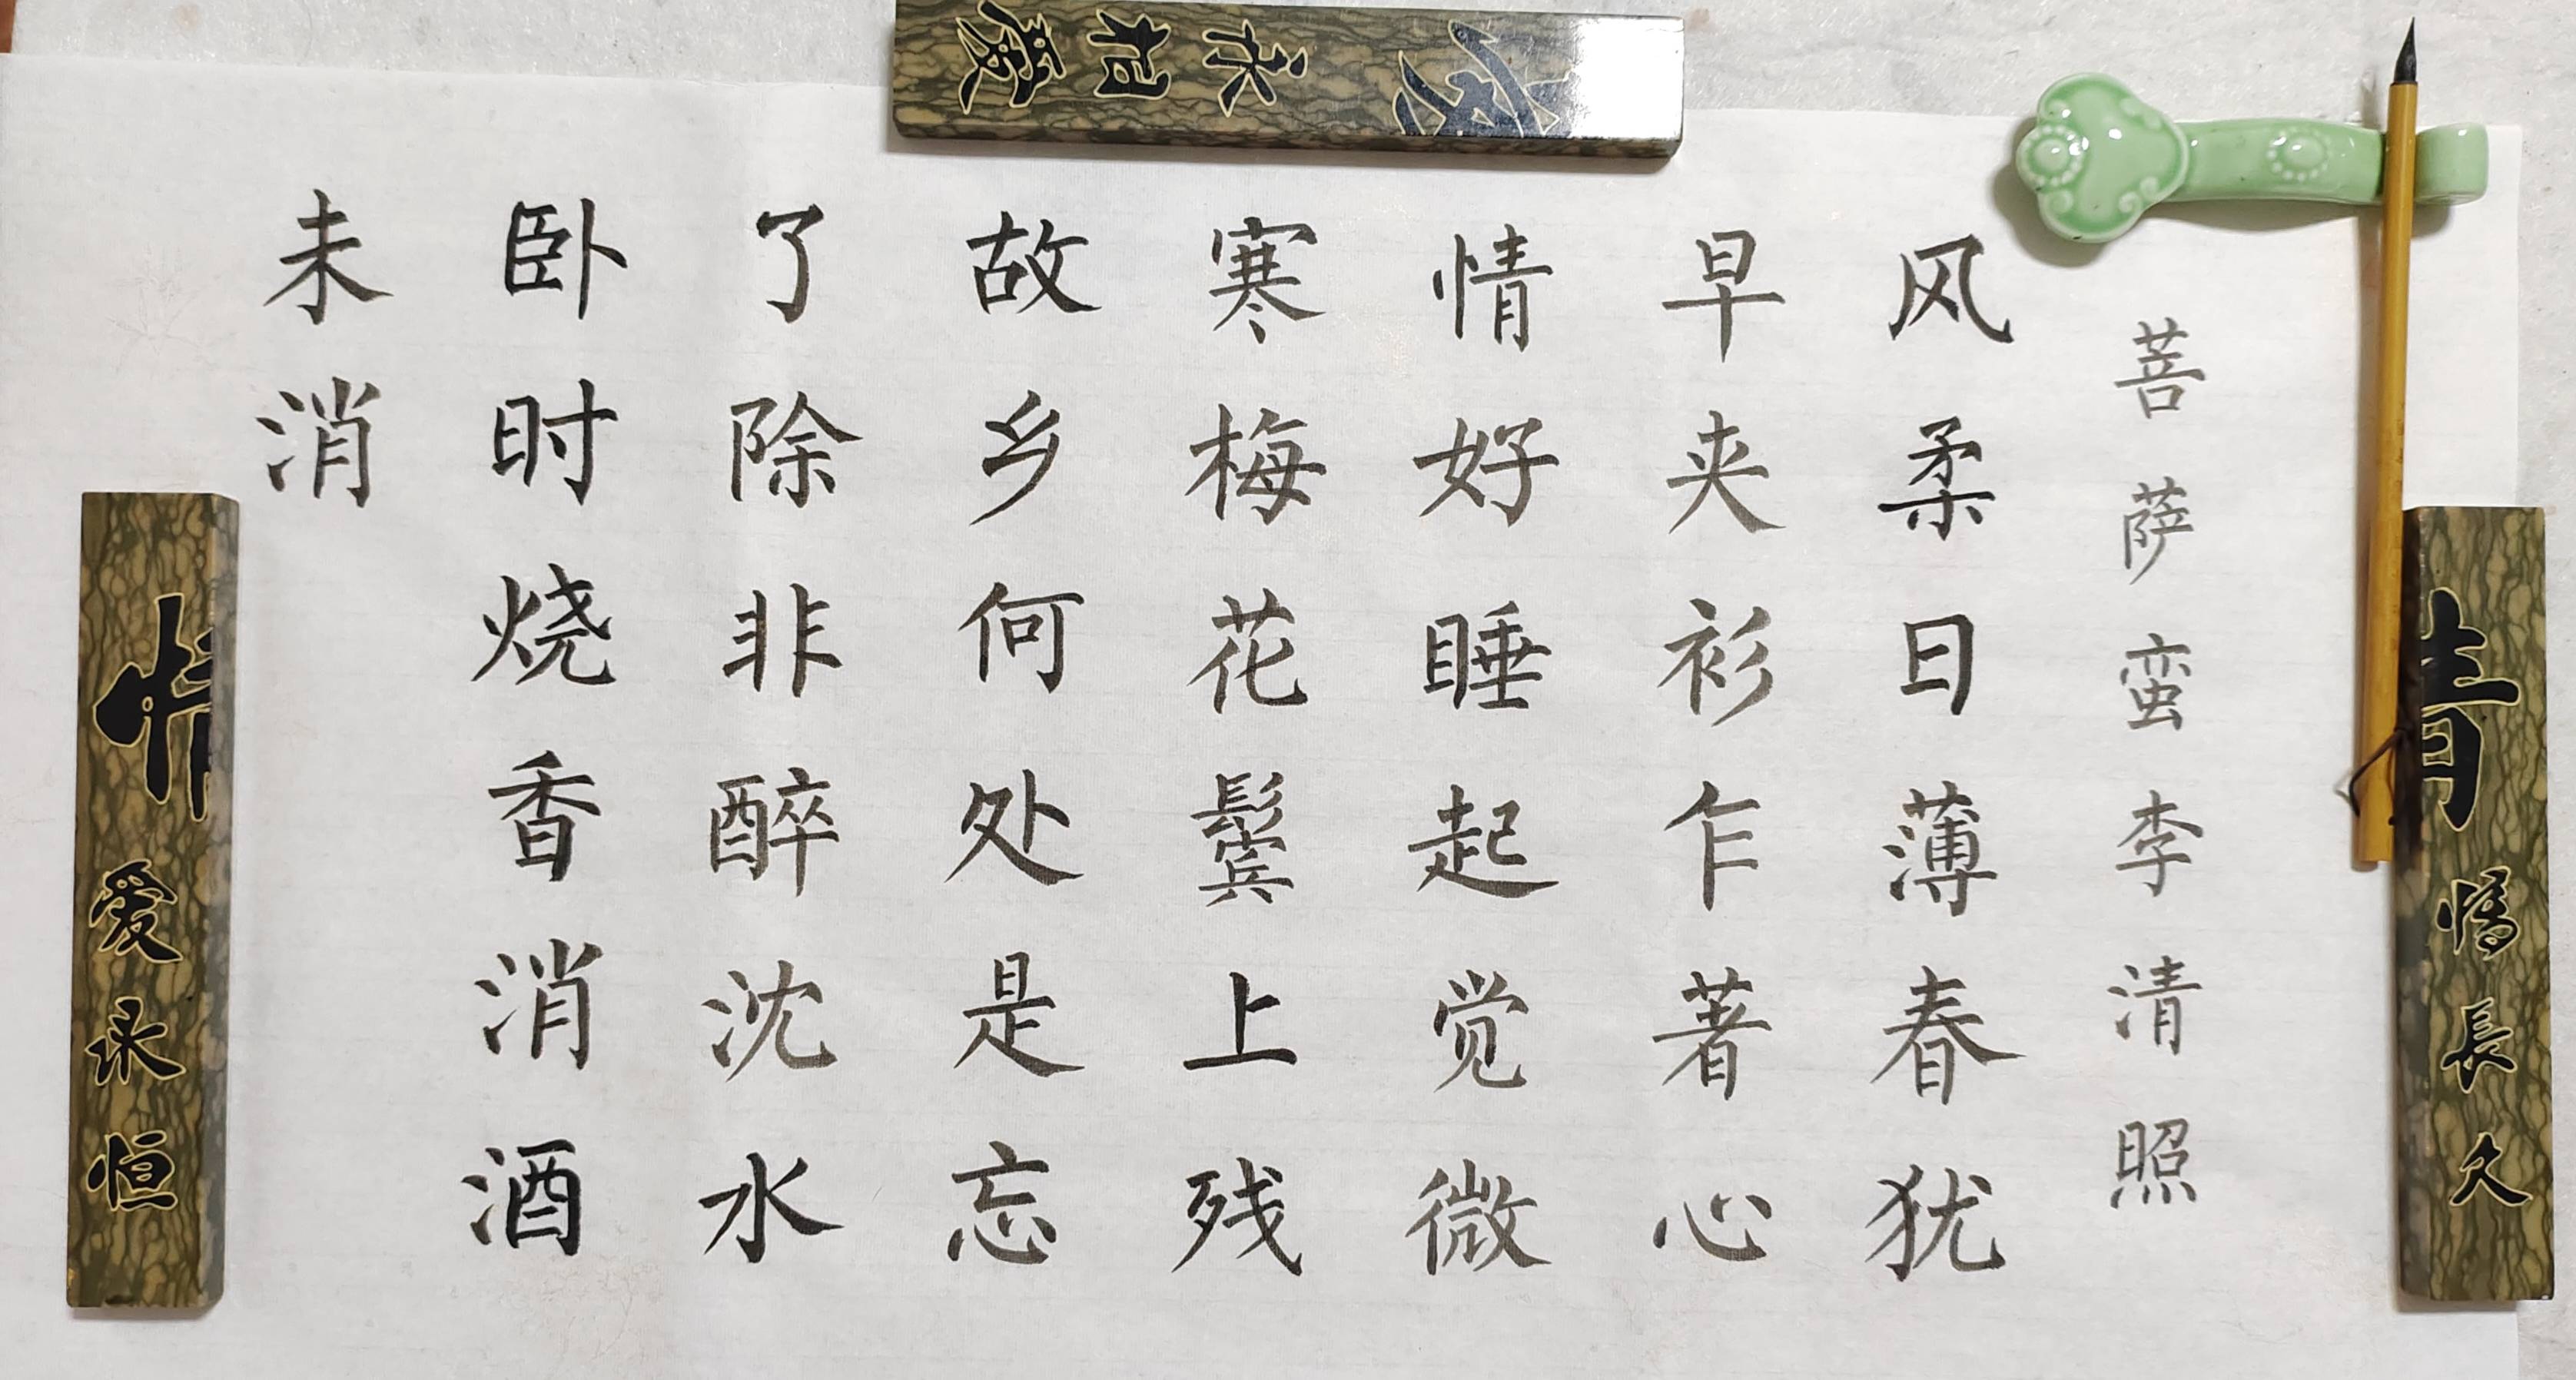 菩萨蛮李清照
风柔日薄春犹
早夹衫乍著心
情好睡起觉微
寒梅花鬓上残
故乡何处是忘
了除非醉沈水
卧时烧香消酒
未消
情長久
爱永恒